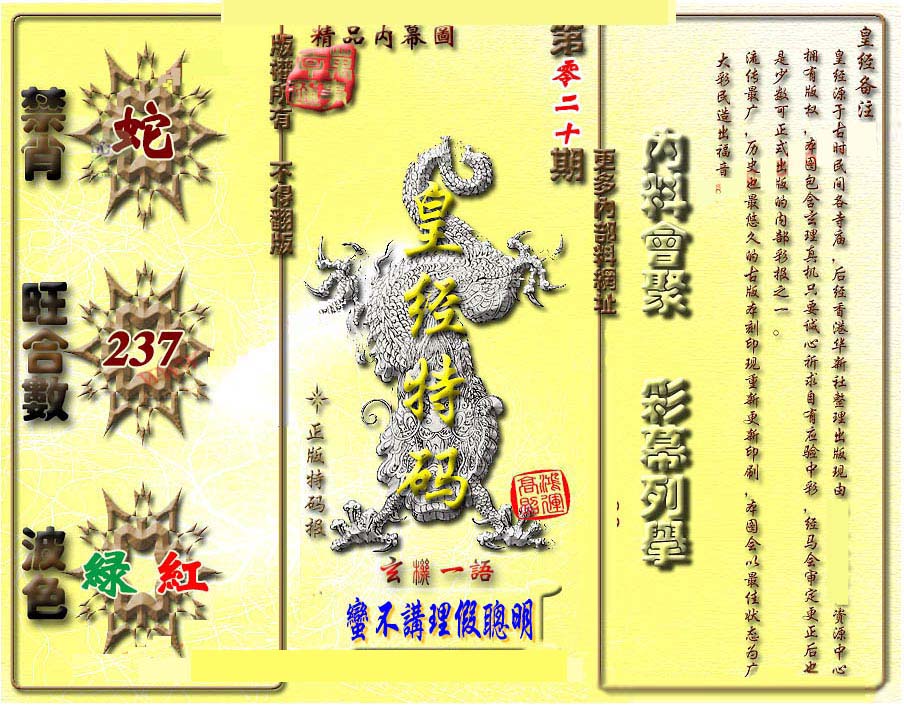 禁肖
蛇
旺合數
237
波色
綠 紅
精品内幕圖
版權所有 不得翻版
第零二十期
更多内部料網址
皇经特码
正版特码报
鴻運高照
玄機一語
蠻不講理假聰明
内料會聚 彩幕列舉
皇经备注
皇经源于古时民间各寺庙,后经香港华新社整理出版现由 资源中心
拥有版权,本图包含玄理真机只要诚心祈求自有应验中彩,经马会审定更正后也
是少数可正式出版的内部彩报之一。
流传最广,历史也最悠久的古版本刻印现重新更新印刷,本图会以最佳状态为广
大彩民造出福音